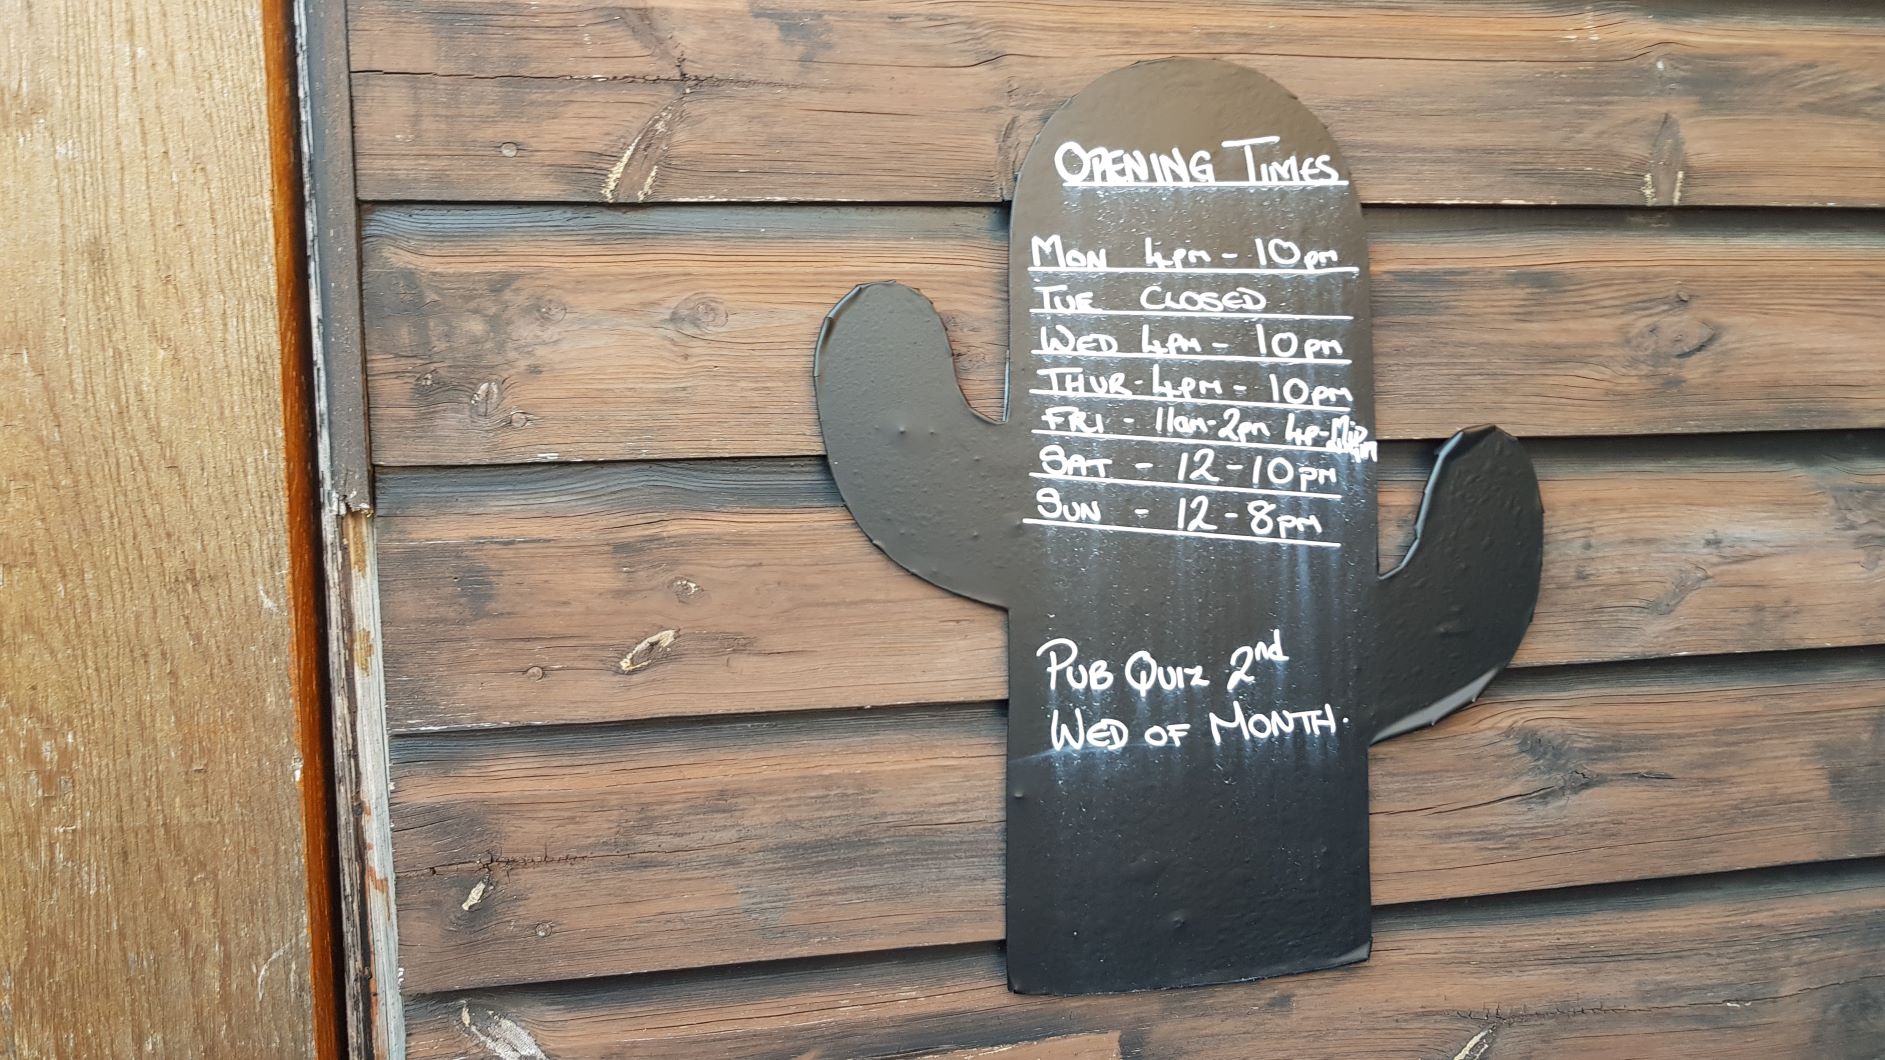 OPENING TIMES
MON 4pm - 10pm
TUE CLOSED
WED 4pm - 10pm
THUR - 4pm - 10pm
FRI - 11am-2pm 4p-Mid
SAT - 12 - 10pm
SUN - 12 - 8pm
PUB QUIZ 2nd
WED OF MONTH.